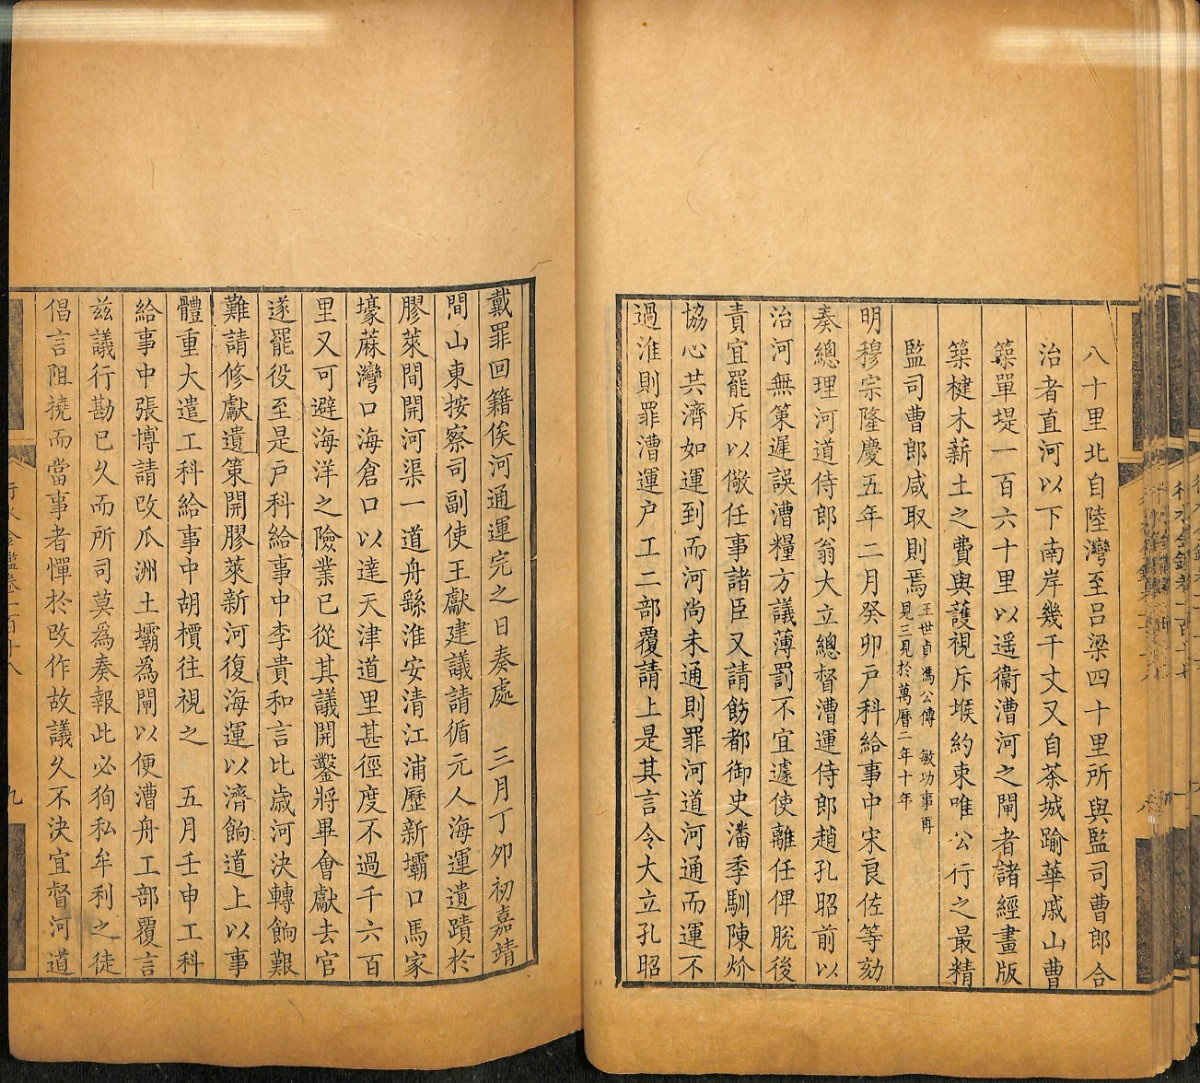 八十里北自陸灣至吕梁四十里所與監司曹郎合
治者直河以下南岸幾千丈又自茶城踰華戚山曹
築單堤一百六十里以遥衞漕河之閘者諸經畫版
築楗木薪土之費與護視斥堠約束唯公行之最精
監司曹郎咸取則焉王世貞馮公傳　敏功事再
見三見於萬曆二年十年
明穆宗隆慶五年二月癸卯户科給事中宋良佐等劾
奏總理河道侍郎翁大立總督漕運侍郎趙孔昭前以
治河無策遲誤漕糧方議薄罰不宜遽使離任俾脫後
責宜罷斥以儆任事諸臣又請飭都御史潘季馴陳炌
協心共濟如運到而河尚未通則罪河道河通而運不
過淮則罪漕運户工二部覆請上是其言令大立孔昭
戴罪回籍俟河通運完之日奏處　三月丁夘初嘉靖
間山東按察司副使王獻建議請循元人海運遺蹟於
膠萊間開河渠一道舟繇淮安清江浦歷新壩口馬家
壕蔴灣口海倉口以達天津道里甚徑度不過千六百
里又可避海洋之險業已從其議開鑿將畢會獻去官
遂罷役至是戸科給事中李貴和言比歲河決轉餉艱
難請修獻遺策開膠萊新河復海運以濟餉道上以事
體重大遣工科給事中胡檟往視之　五月壬申工科
給事中張博請改瓜洲土壩爲閘以便漕舟工部覆言
兹議行勘已久而所司莫爲奏報此必狥私牟利之徒
倡言阻撓而當事者憚於改作故議久不決宜督河道
行水金鑑卷一百十八
九